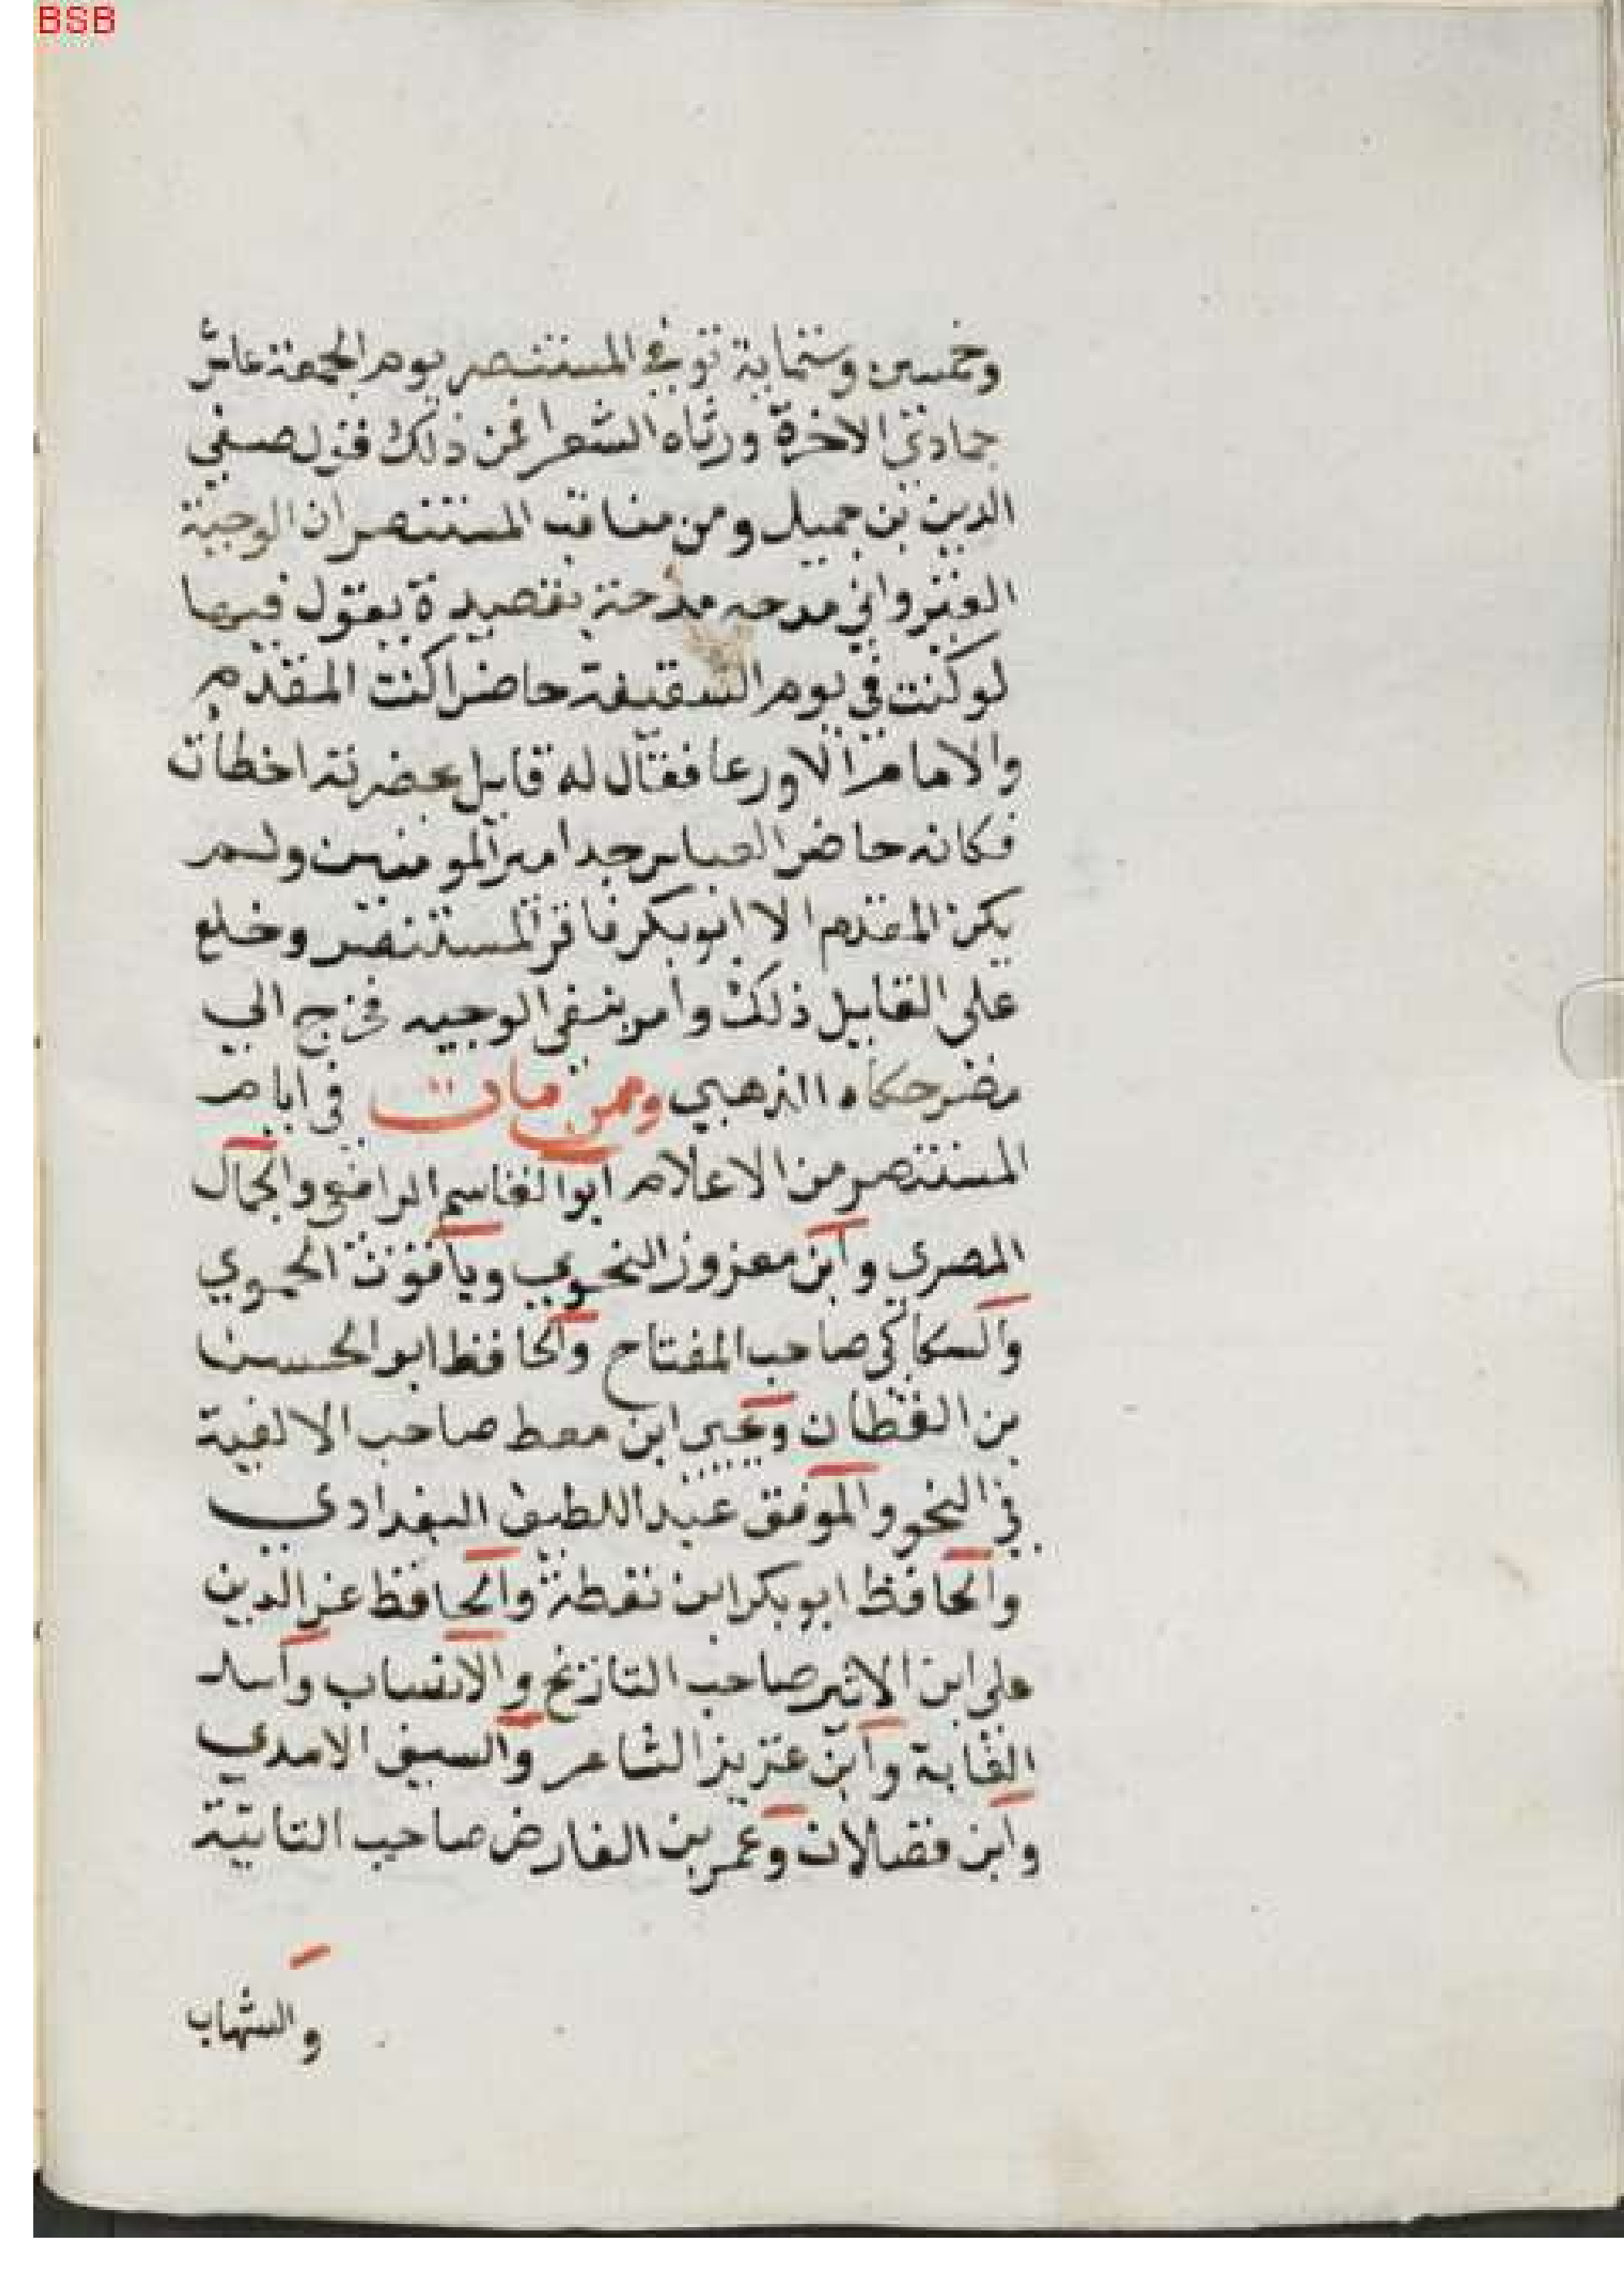 BSB
وخمسين وستماية توفي المستنصر يوم الجمعة عاشر
جمادي الاخرة ورثاه الشعرا فمن ذلك قول صفي
الدين بن جميل ومن مناقب المستنصر ان الوجية
القيرواني مدحه مدحته بقصيدة يقول فيها
لو كنت في يوم السقيفة حاضرا كنت المقدم
والامام الاورعا فقال له قايل بحضرته اخطات
فكانه حاضر العباس جد امير المومنين ولم
يكن المقدم الا ابو بكر فاقر المستنصر وخلع
على القايل ذلك وامر بنفي الوجيه فخرج الي
مضر حكاه الذهبي وممن مات في ايام
المستنصر من الاعلام ابوالقاسم الرافعي والجمال
المصري وابن معزوز النحوي وياقوت الحموي
والسكاكي صاحب المفتاح والحافظ ابو الحسن
بن القطان ويحيى ابن معط صاحب الالفية
في النحو والموفق عبد اللطيف البغدادي
والحافظ ابو بكر ابن نقطة والحافظ عز الدين
على ابن الاثير صاحب التاريخ والانساب واسد
الغابة وابن عزيز الشاعر والسيف الامدي
وابن فضلان وعمر بن الفارض صاحب التايية
والشهاب